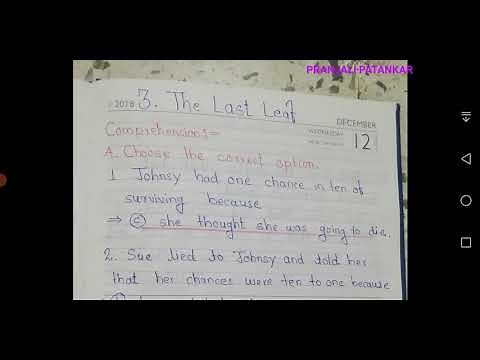 PRANJALI PATANKAR
2018
3. The Last Leaf
DECEMBER
WEDNESDAY
12
Comprehensions=
A. Choose the correct option.
1 Johnsy had one chance in ten of
surviving because
⇒ (c) she thought she was going to die.
2. Sue lied to Johnsy and told her
that her chances were ten to one because